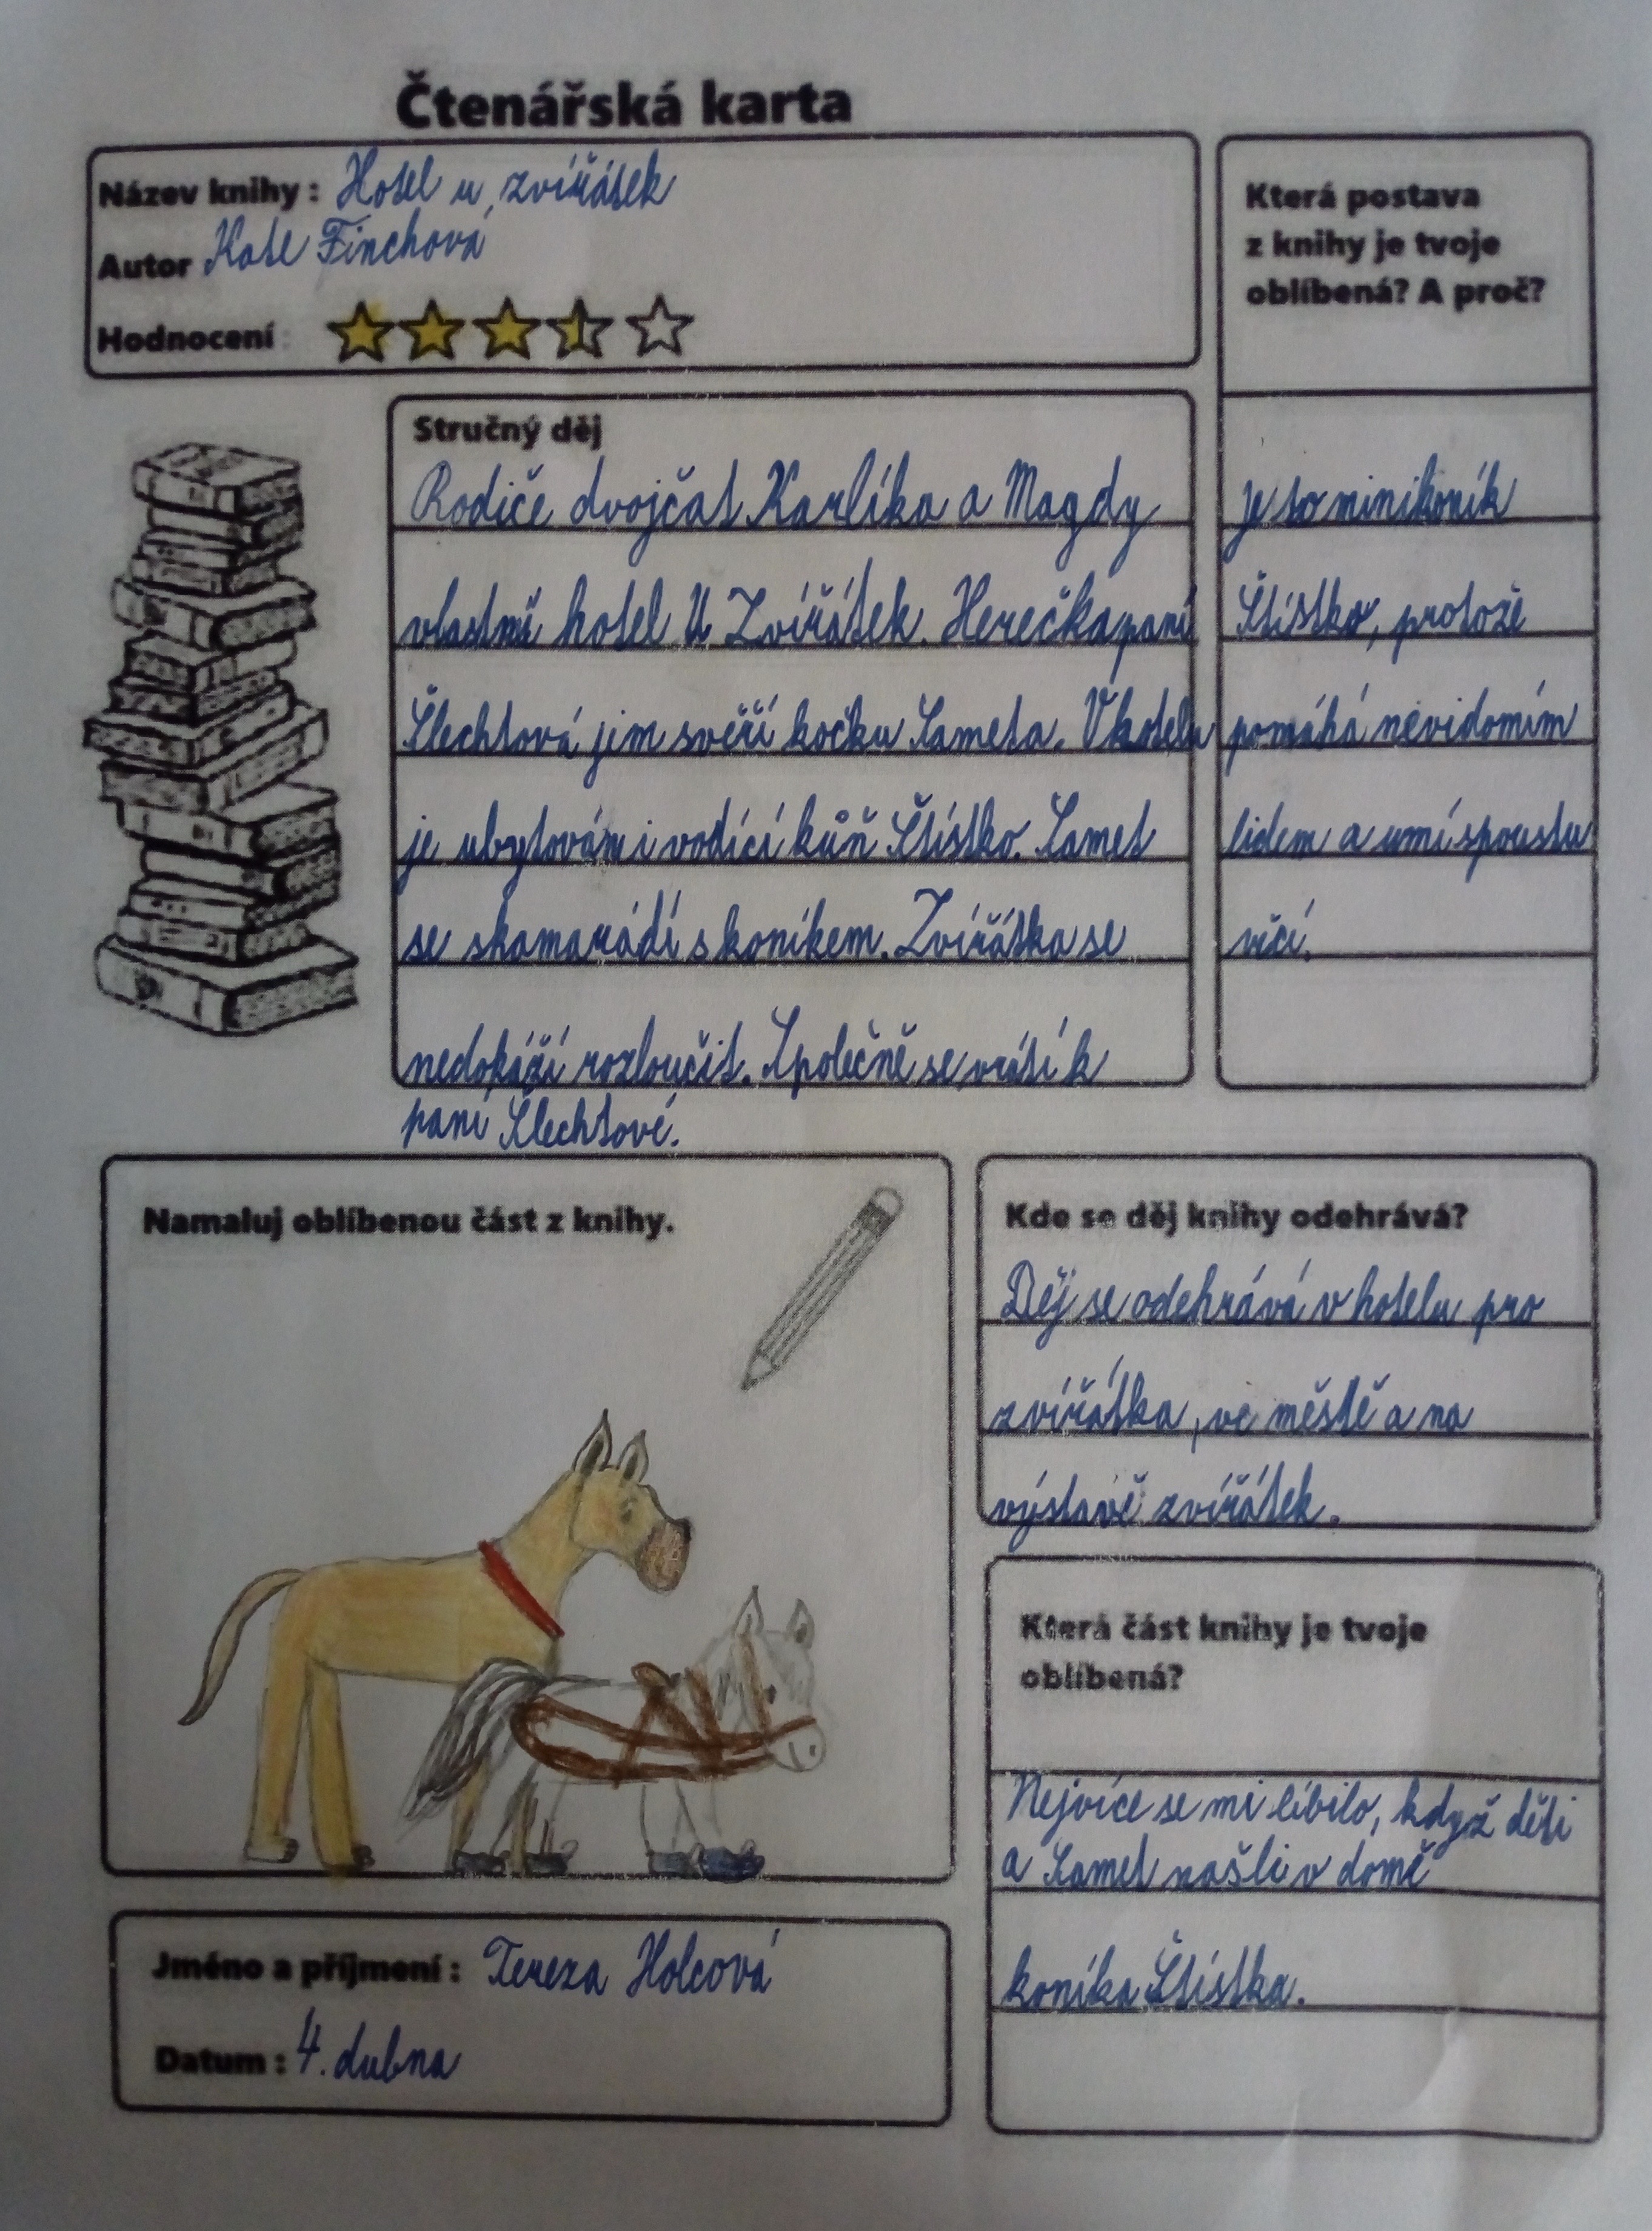 Čtenářská karta
Název knihy : Hotel u zvířátek
Autor Kate Finchová
Hodnocení
Která postava
z knihy je tvoje
oblíbená? A proč?
je to minikoník
Štístko, protože
pomáhá nevidomím
lidem a umí spoustu
věcí.
Stručný děj
Rodiče dvojčat Karlíka a Magdy
vlastní hotel U Zvířátek. Herečka paní
Šlechtová jim svěří kočku Sameta. V hotelu
je ubytován i vodící kůň Štístko. Samet
se skamarádí s koníkem. Zvířátka se
nedokáží rozloučit. Společně se vrátí k
paní Šlechtové.
Namaluj oblíbenou část z knihy.
Kde se děj knihy odehrává?
Děj se odehrává v hotelu pro
zvířátka, ve městě a na
výstavě zvířátek.
Která část knihy je tvoje
oblíbená?
Nejvíce se mi líbilo, když děti
a Samet našli v domě
koníka Štístka.
Jméno a příjmení : Tereza Holcová
Datum : 4. dubna